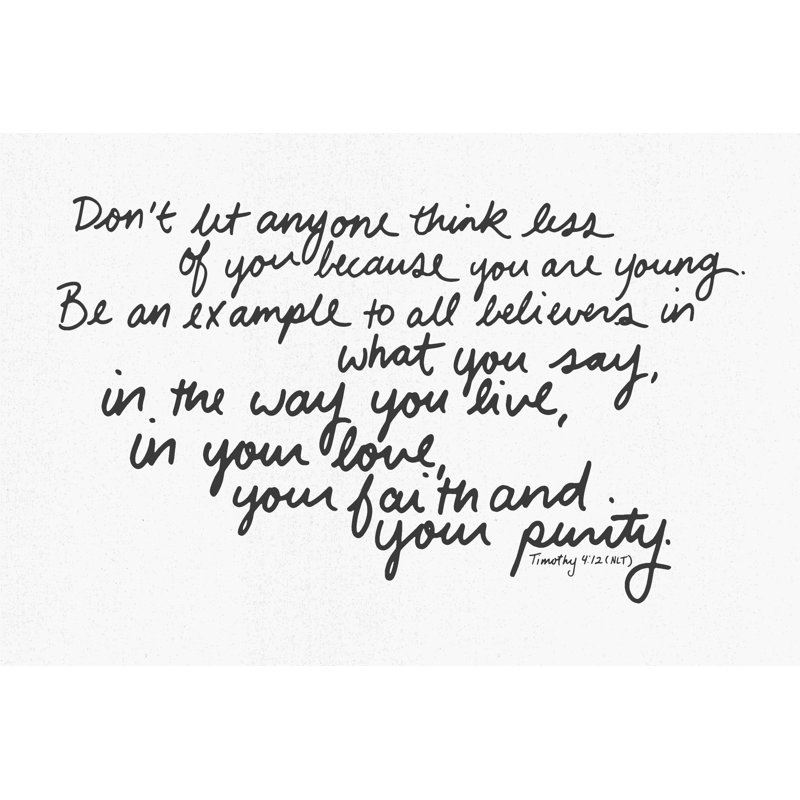 Don't let anyone think less
of you because you are young.
Be an example to all believers in
what you say,
in the way you live,
in your love,
your faith and
your purity.
Timothy 4:12 (NLT)